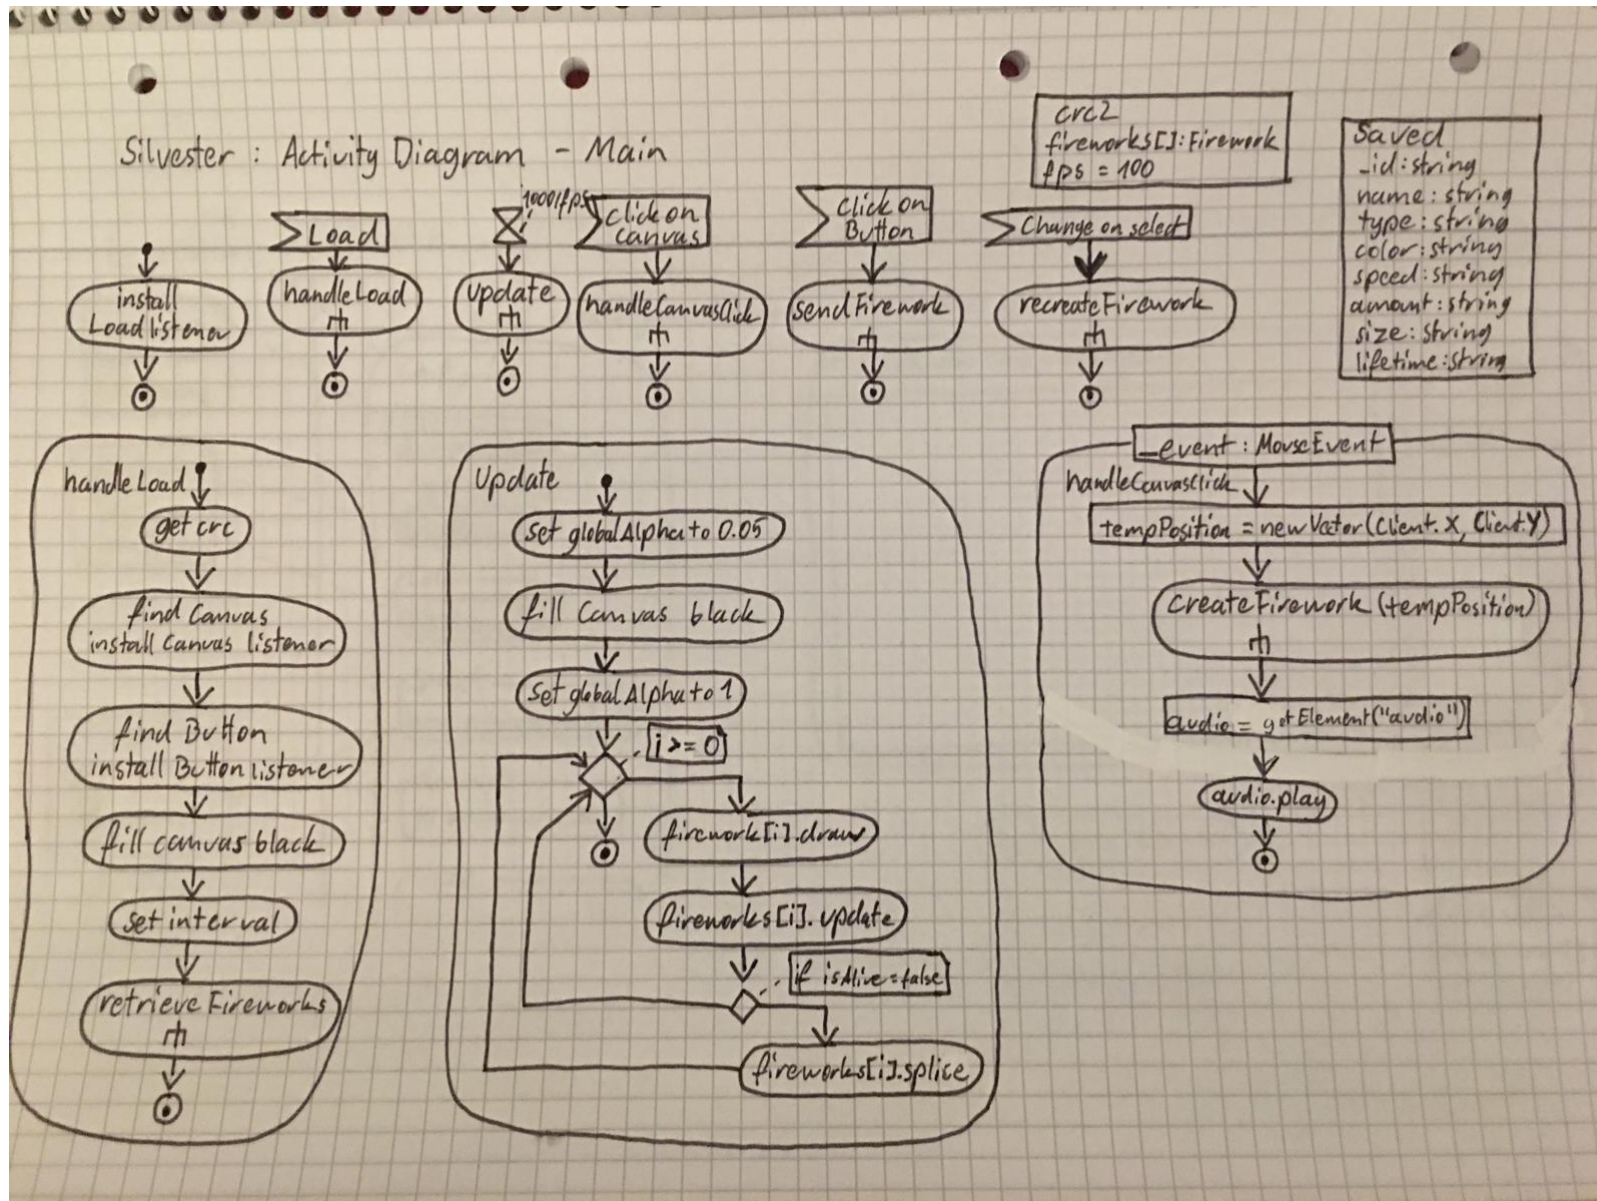 Silvester : Activity Diagram - Main
crc2
fireworks[]: Firework
fps = 100
Saved
_id: string
name: string
type: string
color: string
speed: string
amount: string
size: string
lifetime: string
install
Load listener
Load
handleLoad
1000/fps
update
Click on
canvas
handleCanvasClick
Click on
Button
sendFirework
Change on select
recreateFirework
handleLoad
get crc
find Canvas
install Canvas listener
find Button
install Button listener
fill canvas black
set interval
retrieve Fireworks
Update
set globalAlpha to 0.05
fill Canvas black
set globalAlpha to 1
i >= 0
firework[i].draw
fireworks[i].update
if isAlive=false
fireworks[i].splice
_event : MouseEvent
handleCanvasClick
tempPosition = new Vector(Client.X, Client.Y)
createFirework (tempPosition)
audio = getElement("audio")
audio.play